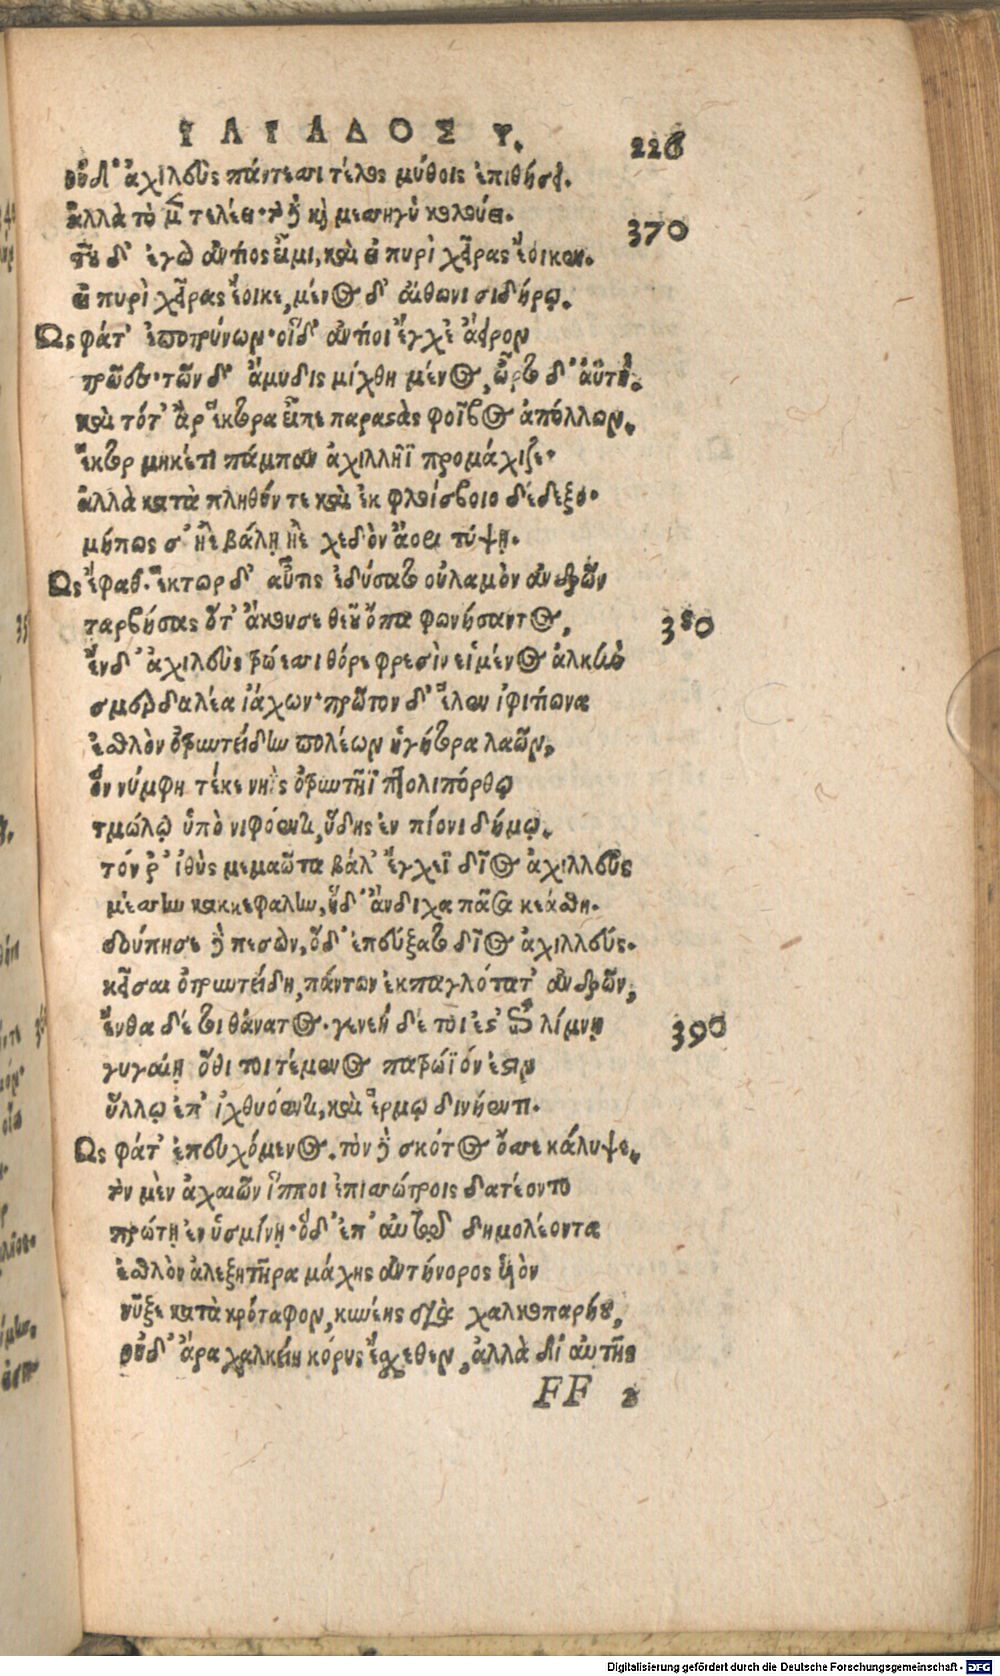 ΙΛΙΑΔΟΣ Υ. 226
οὐδ' ἀχιλεὺς πάντεσσι τέλος μύθοις ἐπιθήσει.
ἀλλὰ τὸ μὲν τελέει· τὸ δὲ καὶ μεσσηγὺ κολούει. 370
τοῦ δ' ἐγὼ ἀντίος εἶμι, καὶ εἰ πυρὶ χεῖρας ἔοικεν.
εἰ πυρὶ χεῖρας ἔοικε, μένος δ' αἴθωνι σιδήρῳ.
Ως φάτ' ἐποτρύνων· οἱ δ' ἀντίοι ἔγχε' ἄειρον
τρῶες· τῶν δ' ἄμυδις μίχθη μένος, ὦρτο δ' ἀϋτή.
καὶ τότ' ἂρ ἕκτορα εἶπε παραστὰς φοῖβος ἀπόλλων.
ἕκτορ μηκέτι πάμπαν ἀχιλλῆϊ προμάχιζε·
ἀλλὰ κατὰ πληθύν τε καὶ ἐκ φλοίσβοιο δέδεξο·
μήπως σ' ἠὲ βάλῃ ἠὲ σχεδὸν ἄορι τύψῃ.
Ως ἔφαθ. ἕκτωρ δ' αὖτις ἐδύσατο οὐλαμὸν ἀνδρῶν
ταρβήσας ὅτ' ἄκουσε θεοῦ ὄπα φωνήσαντος, 380
ἐν δ' ἀχιλεὺς τρώεσσι θόρε φρεσὶν εἱμένος ἀλκὴν
σμερδαλέα ἰάχων· πρῶτον δ' ἕλεν ἰφιτίωνα
ἐσθλὸν ὀτρυντείδην πολέων ἡγήτορα λαῶν,
ὃν νύμφη τέκε νηῒς ὀτρυντῆϊ πτολιπόρθῳ
τμώλῳ ὑπὸ νιφόεντι, ὕδης ἐν πίονι δήμῳ.
τόν ῥ' ἰθὺς μεμαῶτα βάλ' ἔγχεϊ δῖος ἀχιλλεὺς
μέσσην κακκεφαλὴν, ἡ δ' ἄνδιχα πᾶσα κεάσθη.
δούπησε δὲ πεσὼν, ὁ δ' ἐπεύξατο δῖος ἀχιλλεύς.
κεῖσαι ὀτρυντείδη, πάντων ἐκπαγλότατ' ἀνδρῶν,
ἔνθα δέ τοι θάνατος· γενεὴ δέ τοι ἐστ' ἐπὶ λίμνῃ 390
γυγαίῃ ὅθι τοι τέμενος πατρώϊόν ἐστιν
ὕλλῳ ἐπ' ἰχθυόεντι, καὶ ἕρμῳ δινήεντι.
Ως φάτ' ἐπευχόμενος. τὸν δὲ σκότος ὄσσε κάλυψε.
τὸν μὲν ἀχαιῶν ἵπποι ἐπισσώτροις δατέοντο
πρώτῃ ἐν ὑσμίνῃ· ὁ δ' ἐπ' αὐτῷ δημολέοντα
ἐσθλὸν ἀλεξητῆρα μάχης ἀντήνορος υἱὸν
νύξε κατὰ κρόταφον, κυνέης διὰ χαλκοπαρῄου,
οὐδ' ἄρα χαλκείη κόρυς ἔσχεθεν, ἀλλὰ δι' αὐτῆς
FF 2
Digitalisierung gefördert durch die Deutsche Forschungsgemeinschaft - DFG